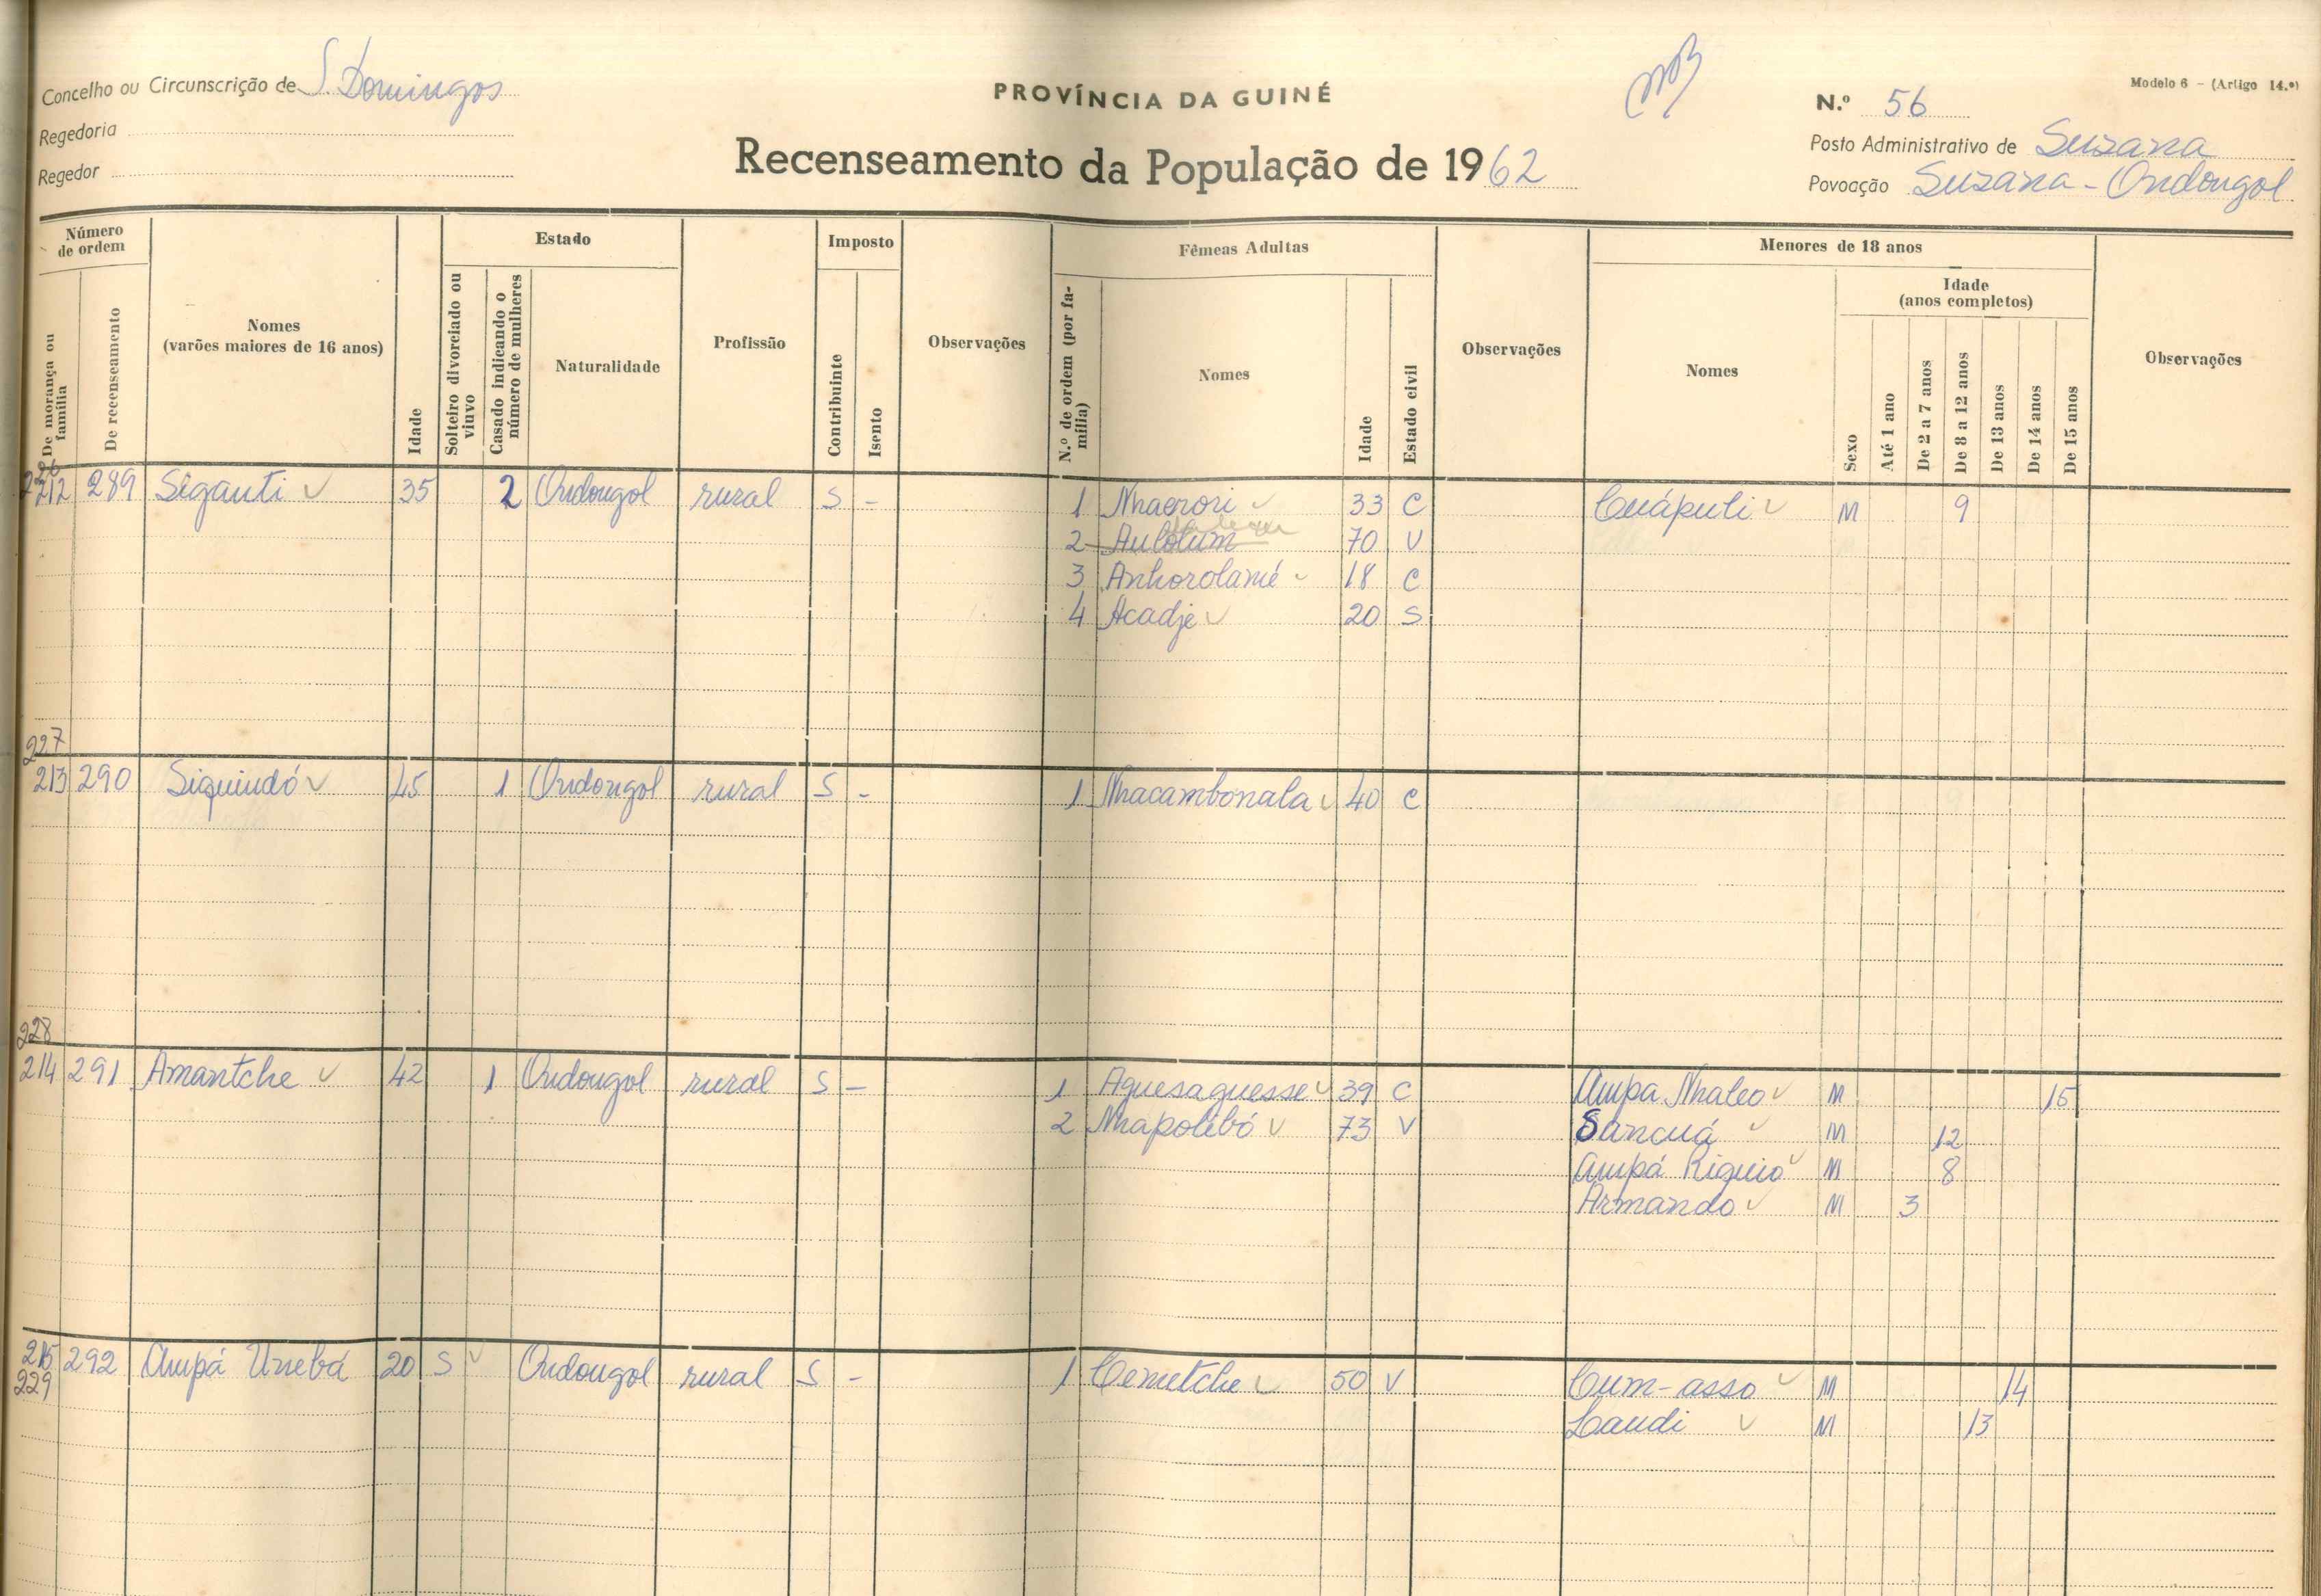 Concelho ou Circunscrição de S. Domingos
Regedoria
Regedor
PROVÍNCIA DA GUINÉ
Recenseamento da População de 1962
Modelo 6 - (Artigo 14.º)
N.º 56
Posto Administrativo de Suzana
Povoação Suzana - Ondongol
Número de ordem
De morança ou família
De recenseamento
Nomes (varões maiores de 16 anos)
Idade
Estado
Solteiro divorciado ou viuvo
Casado indicando o número de mulheres
Naturalidade
Profissão
Imposto
Contribuinte
Isento
Observações
Fêmeas Adultas
N.º de ordem (por família)
Nomes
Idade
Estado civil
Observações
Menores de 18 anos
Nomes
Sexo
Idade (anos completos)
Até 1 ano
De 2 a 7 anos
De 8 a 12 anos
De 13 anos
De 14 anos
De 15 anos
Observações
226
212 289 Siganti 35 2 Ondongol rural S - 1 33 C Cuápuli M 9
2 Aulotum 70 V
3 Anhorolamé 18 C
4 Acadje 20 S
227
213 290 Siquindó 45 1 Ondongol rural S - 1 Nhacambonala 40 C
228
214 291 Amantche 42 1 Ondongol rural S - 1 Aguesaguesse 39 C Ampa Nhaleo M 15
2 Nhapolibó 73 V Sancuá M 12
Ampá Riquió M 8
Armando M 3
215 292 Ampá Unebá 20 S Ondongol rural S - 1 Cemetche 50 V Cum-asso M 14
229 Laudi M 13